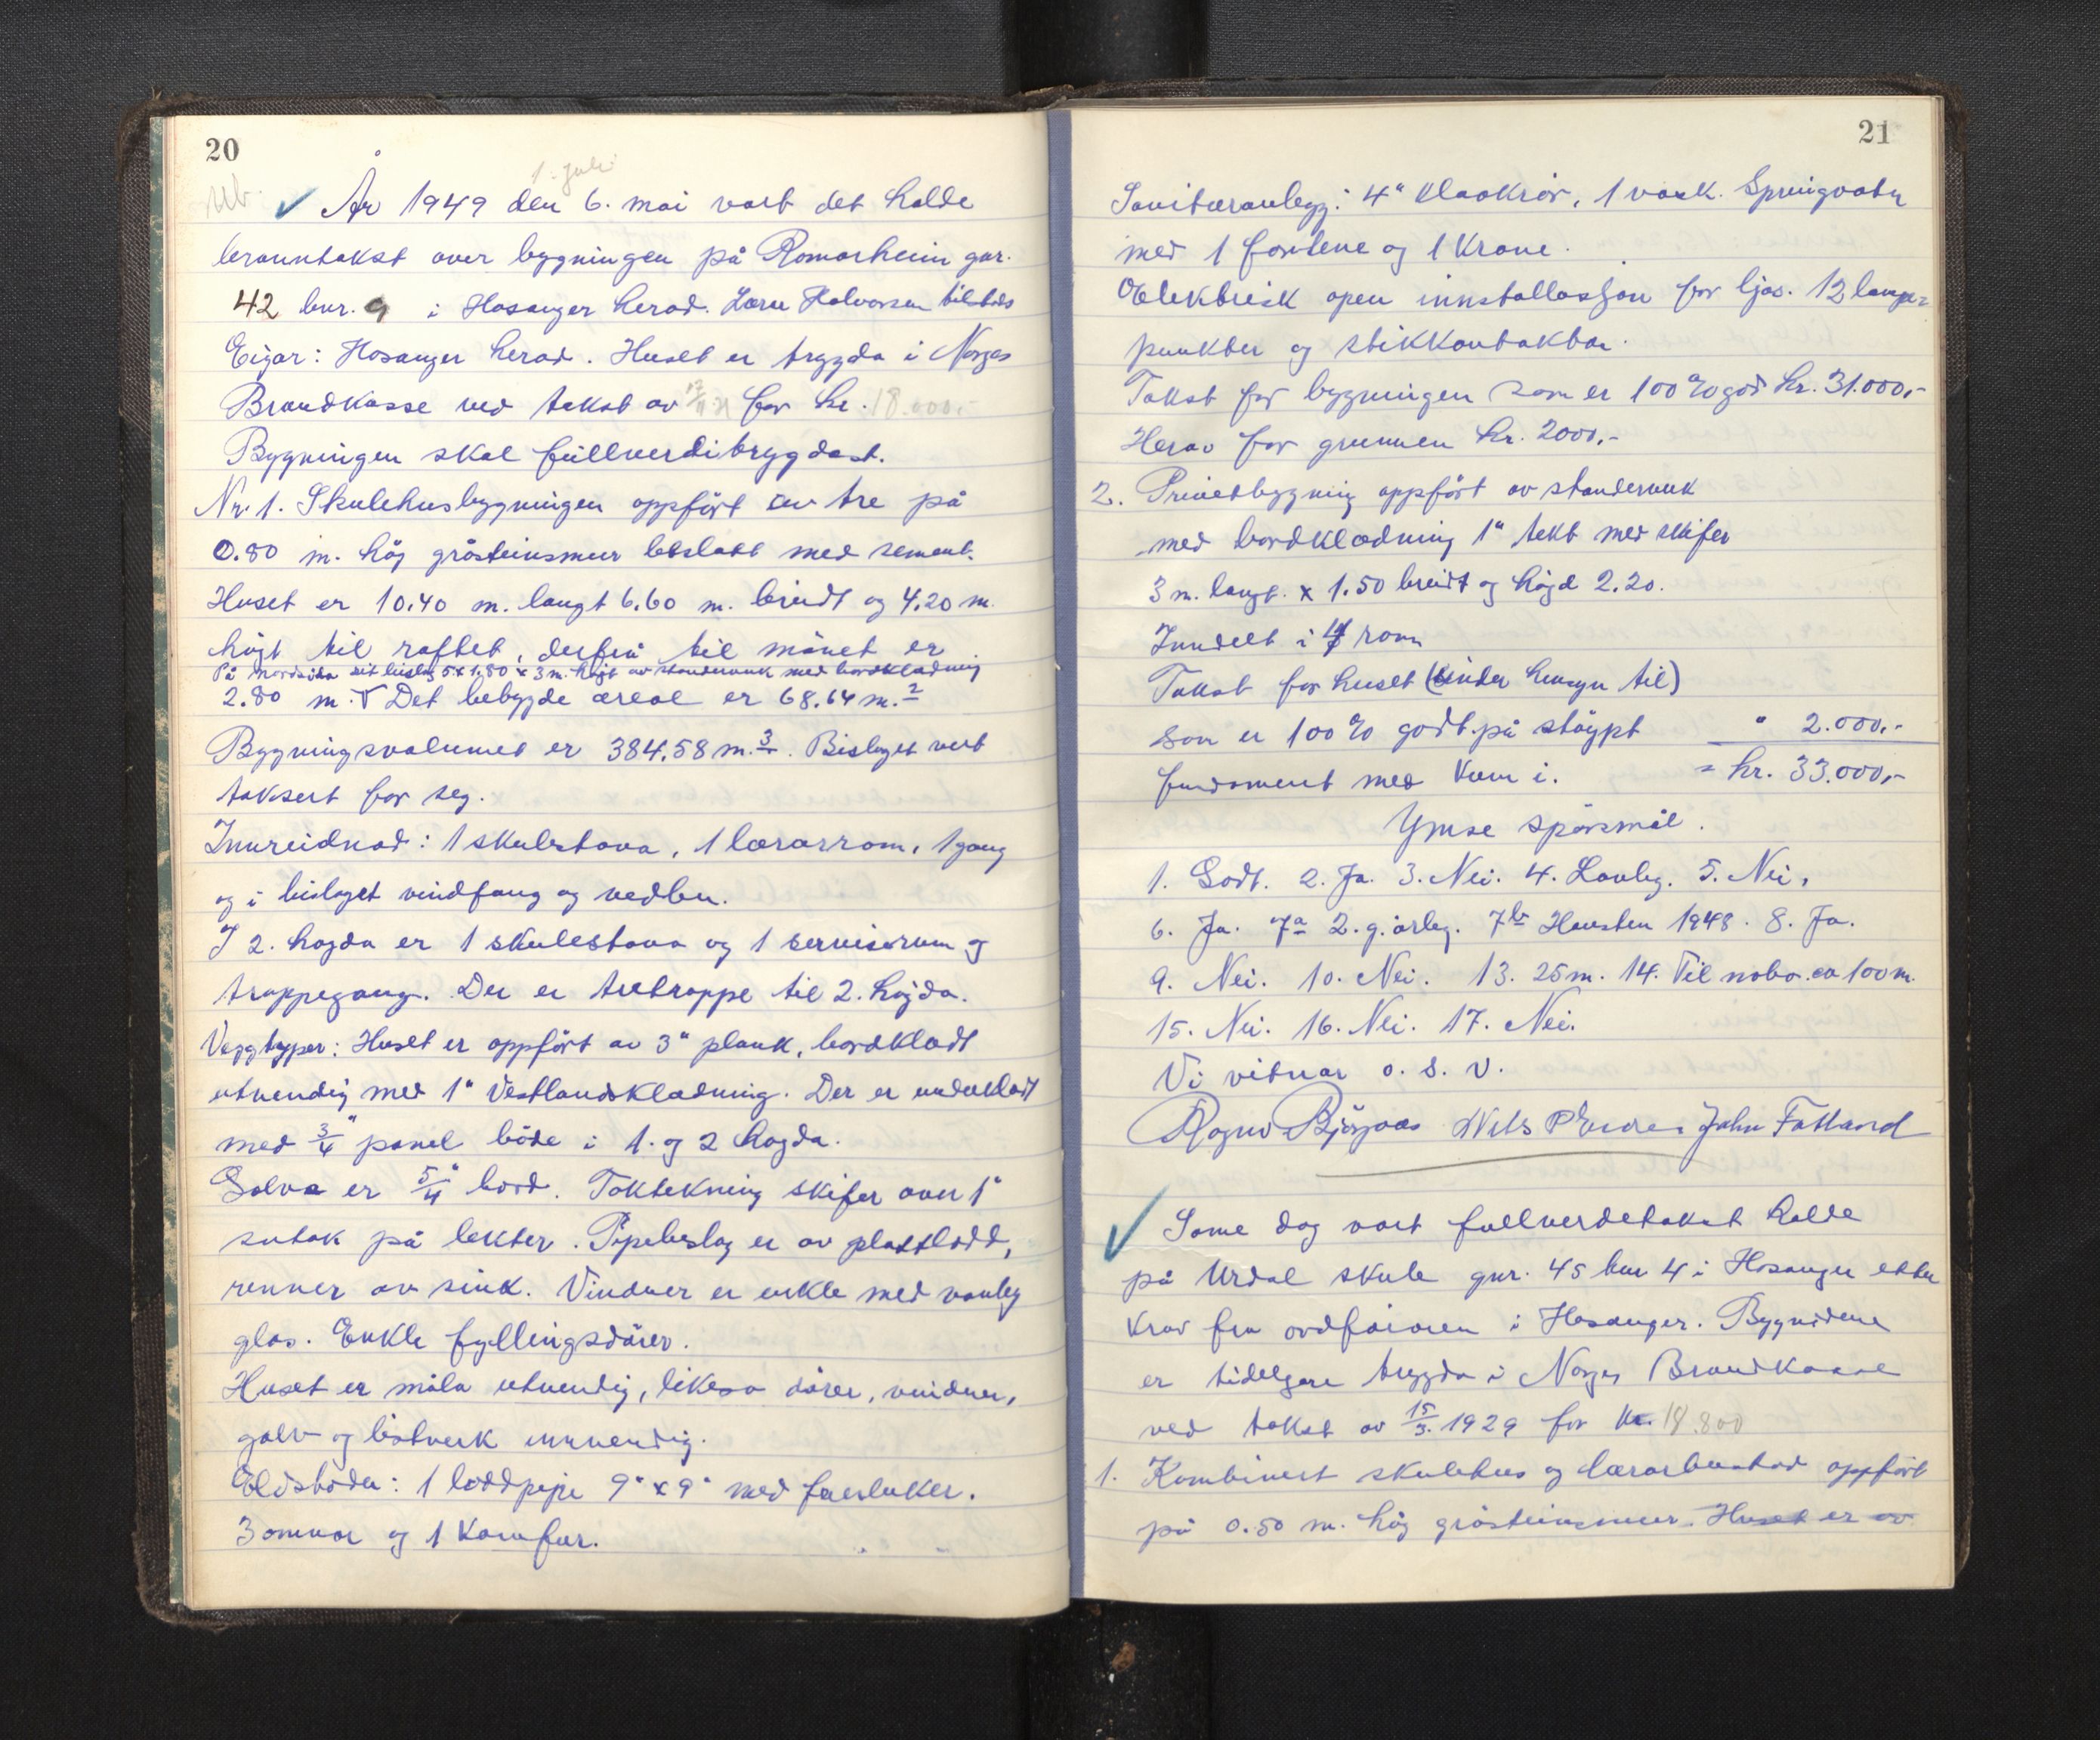 20
1. juli
År 1949 den 6. mai vart det halde
branntakst over bygningen på Romarheim gnr.
42 bnr. 9 i Hosanger herad. Lærer Halvorsen tilstads
Eigar: Hosanger herad. Huset er trygda i Norges
Brandkasse ved takst av for kr. 18.000,-
Bygningen skal fullverditrygdast.
Nr. 1. Skulehusbygningen oppfört av tre på
0.80 m. høg gråsteinsmur beslått med sement.
Huset er 10.40 m. langt 6.60 m. breidt og 4.20 m.
högt til raftet, derfrå til mönet er
På nordsida eit bislag 5 x 1,80 x 3 m. högt av standerverk med bordkledning
2.80 m. V Det bebygde areal er 68.64 m.2
Bygningsvolumet er 384.58 m.3. Bislaget vert
taksert for seg.
Innreidnad: 1 skulestova, 1 lærarrom, 1 gang
og i bislaget vindfang og vedbu.
I 2. høgda er 1 skulestova og 1 servisrum og
trappegang. Der er tretrappe til 2. høgda.
Veggtyper: Huset er oppfört av 3" plank, bordkledt
utvendig med 1" Vestlandskledning. Der er underkledt
med 3/4" panel både i 1. og 2 høgda.
Golva er 5/4" bord. Taktekning skifer over 1"
sutak på lekter. Pipebeslag er av plattlodd,
renner av sink. Vinduer er enkle med vanleg
glas. Enkle fyllingsdører.
Huset er måla utvendig, likeso dører, vinduer,
golv og listverk innvendig.
Eldstoder: 1 loddpipe 9" x 9" med feieluker.
3 omnar og 1 komfur.
21
Sanitæranlegg: 4" kloakrör, 1 vask. Springvatn
med 1 fontene og 1 krane.
Elektrisk open innstallasjon for ljos. 12 lampe=
punkter og stikkontaktar.
Takst for bygningen som er 100 % god kr. 31.000,-
Herav for grunnen kr. 2000,-
2. Privetbygning oppfört av standerverk
med bordkledning 1" tekt med skifer
3 m. langt. x 1.50 breidt og högd 2.20.
Inndelt i 4 rom
Takst for huset (under hensyn til)
som er 100 % godt på støypt " 2.000,-
fundament med kum i. = kr. 33.000,-
Ymse spörsmål.
1. Godt. 2. Ja. 3. Nei. 4. Lovleg. 5. Nei,
6. Ja. 7a 2. g. årleg. 7b Hausten 1948. 8. Ja.
9. Nei. 10. Nei. 13. 25 m. 14. Til nabo ca 100 m.
15. Nei. 16. Nei. 17. Nei.
Vi vitnar o. s. v.
John Fatland
Same dag vart fullverdetakst halde
på Urdal skule gnr. 45 bnr 4 i Hosanger etter
krav fra ordføraren i Hosanger. Bygnidene
er tidelgare trygda i Norges Brandkasse
ved takst av 15/3. 1929 for kr. 18.800
1. Kombinert skulehus og lærarbustad oppfört
på 0.50 m. høg gråsteinsmur. Huset er av